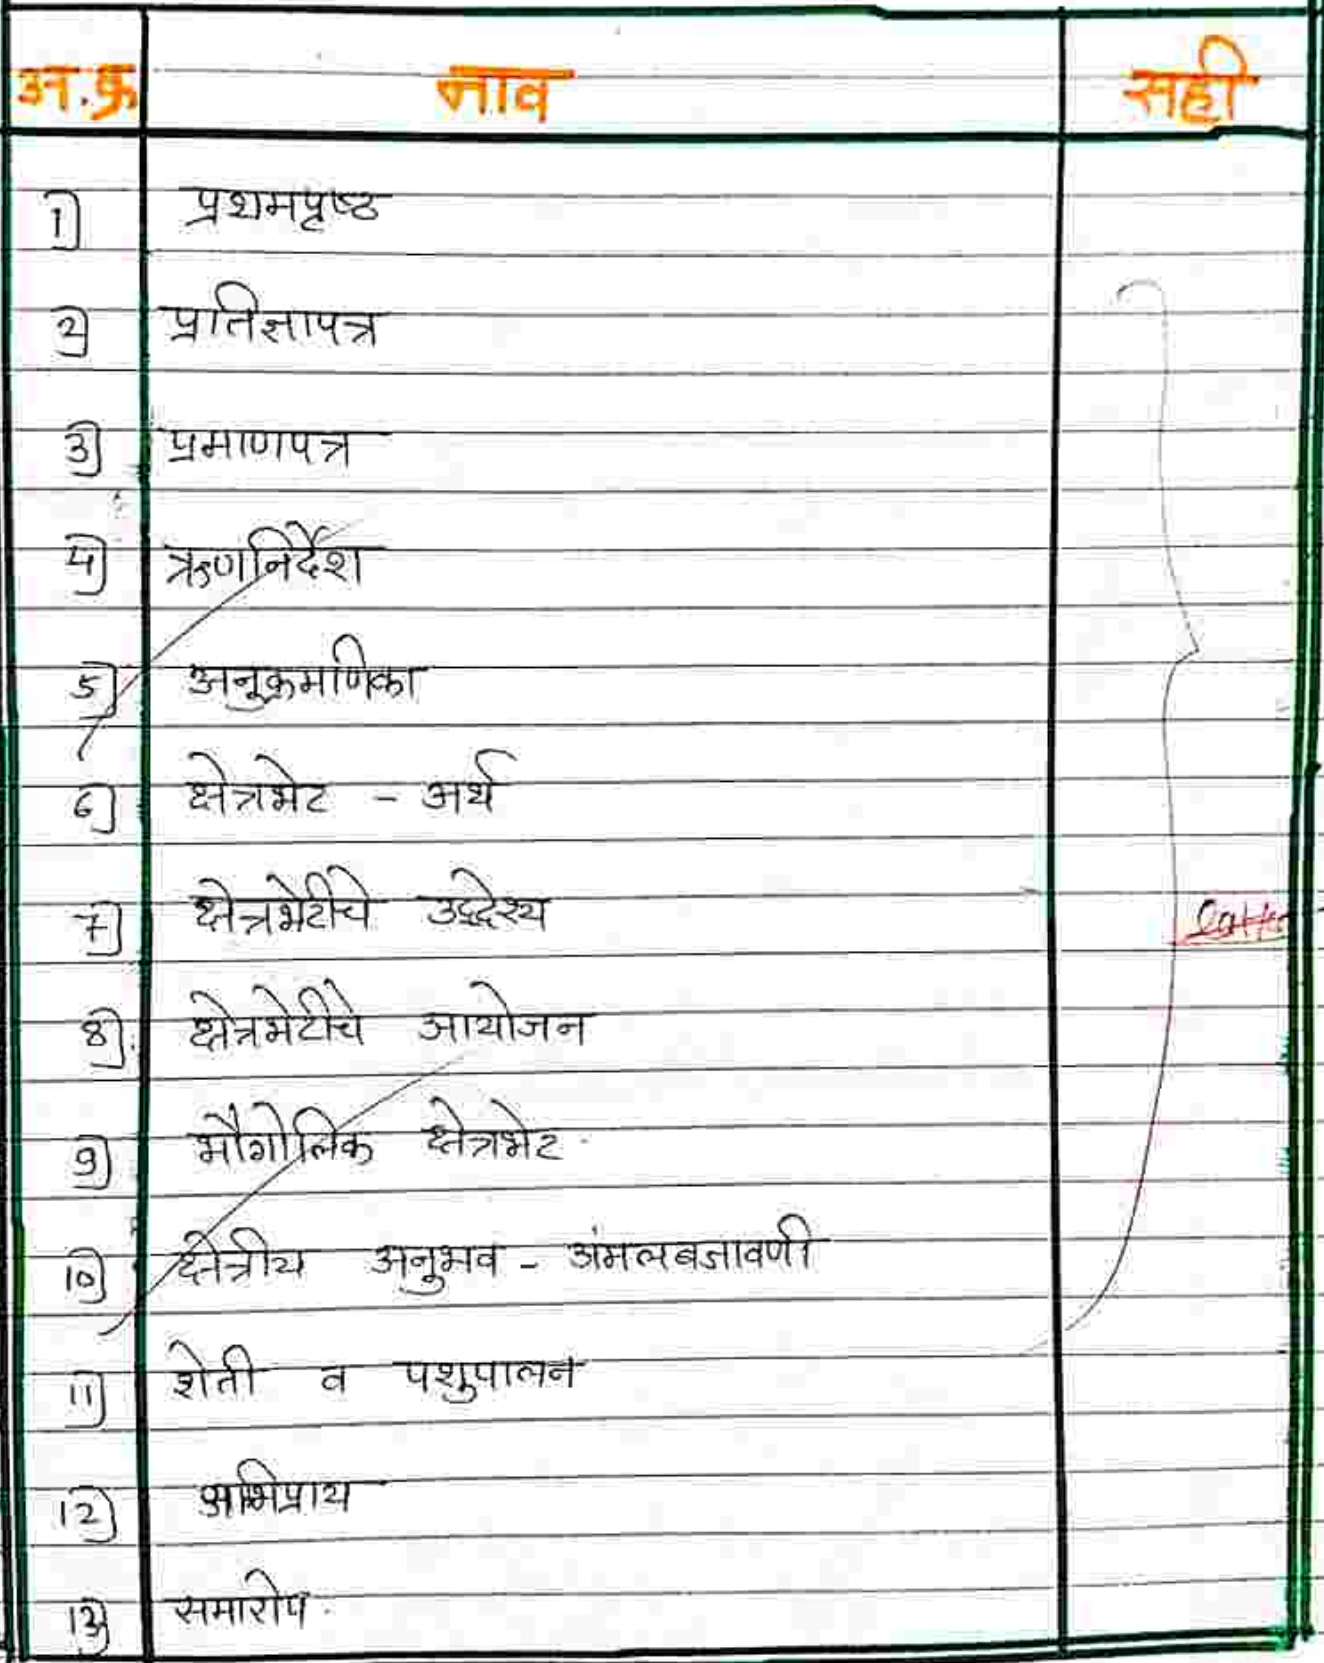 अ.क्र नाव सही
1) प्रथमपृष्ठ
2) प्रतिज्ञापत्र
3) प्रमाणपत्र
4) ऋणनिर्देश
5) अनुक्रमणिका
6) क्षेत्रभेट - अर्थ
7) क्षेत्रभेटीचे उद्देश्य
8) क्षेत्रभेटीचे आयोजन
9) भौगोलिक क्षेत्रभेट
10) क्षेत्रीय अनुभव - अंमलबजावणी
11) शेती व पशुपालन
12) अभिप्राय
13) समारोप